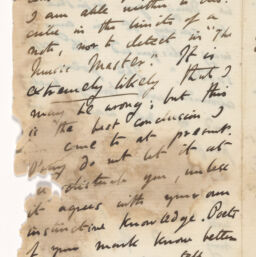 I am able neither to
in the limits of a
note, nor to detect in "The
Music Master." It is
extremely likely that I
may be wrong; but this
is the best conclusion I
come to at present.
Pray do not let it at
disturb you, unless
it agrees with your own
instinctive knowledge. Poets
of your mark know better